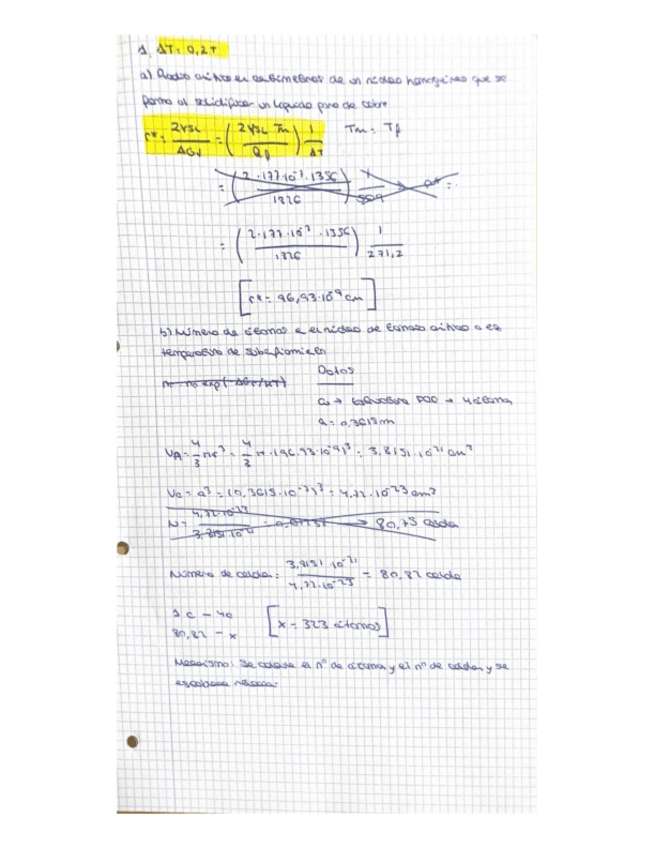 1. ΔT = 0,2T
a) Radio crítico en centímetros de un núcleo homogéneo que se
forma al solidificar un líquido puro de cobre
r* = 2γSL / ΔGv = (2γSL Tm / Qf) 1/ΔT Tm = Tf
= (2·177·10⁻⁷·1356 / 1826)
= (2·177·10⁻⁷·1356 / 1826) 1 / 271,2
[r* = 96,93·10⁻⁹ cm]
b) Número de átomos en el núcleo de tamaño crítico a esa
temperatura de subenfriamiento
n = no exp(-ΔGr/KT)
Datos
Cu → estructura FCC → 4 átomos
a = 0,3615 nm
VA = 4/3 πr³ = 4/3 π·(96,93·10⁻⁹)³ = 3,8151·10⁻²¹ cm³
Vc = a³ = (0,3615·10⁻⁷)³ = 4,72·10⁻²³ cm³
N = 4,72·10⁻²³ / 3,8151·10⁻²¹ → 80,75 celdas
Número de celdas: 3,8151·10⁻²¹ / 4,72·10⁻²³ = 80,82 celdas
1 c – 4a
80,82 – x
[x = 323 átomos]
Mecanismo: Se calcula el nº de átomos y el nº de celdas, y se